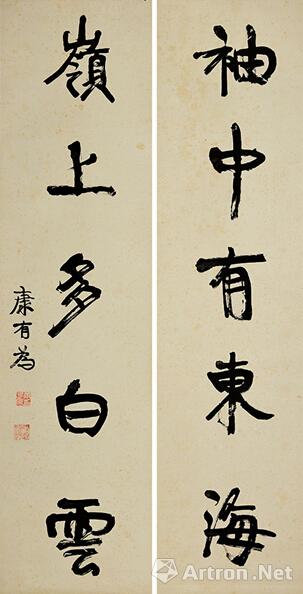 袖中有東海
嶺上多白雲
康有為
Artron.Net